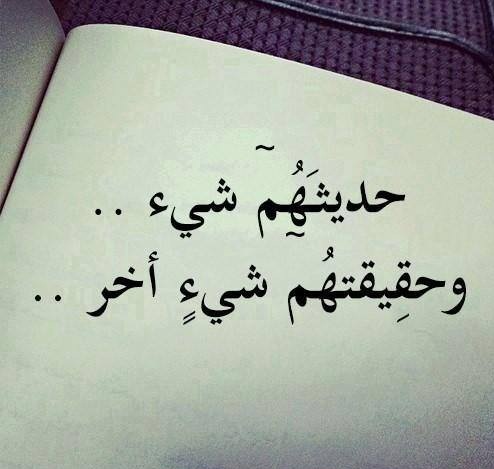 حديثَهُِم~ شيء ..
وحقِيقتهُم~ شيءٍ أخر ..